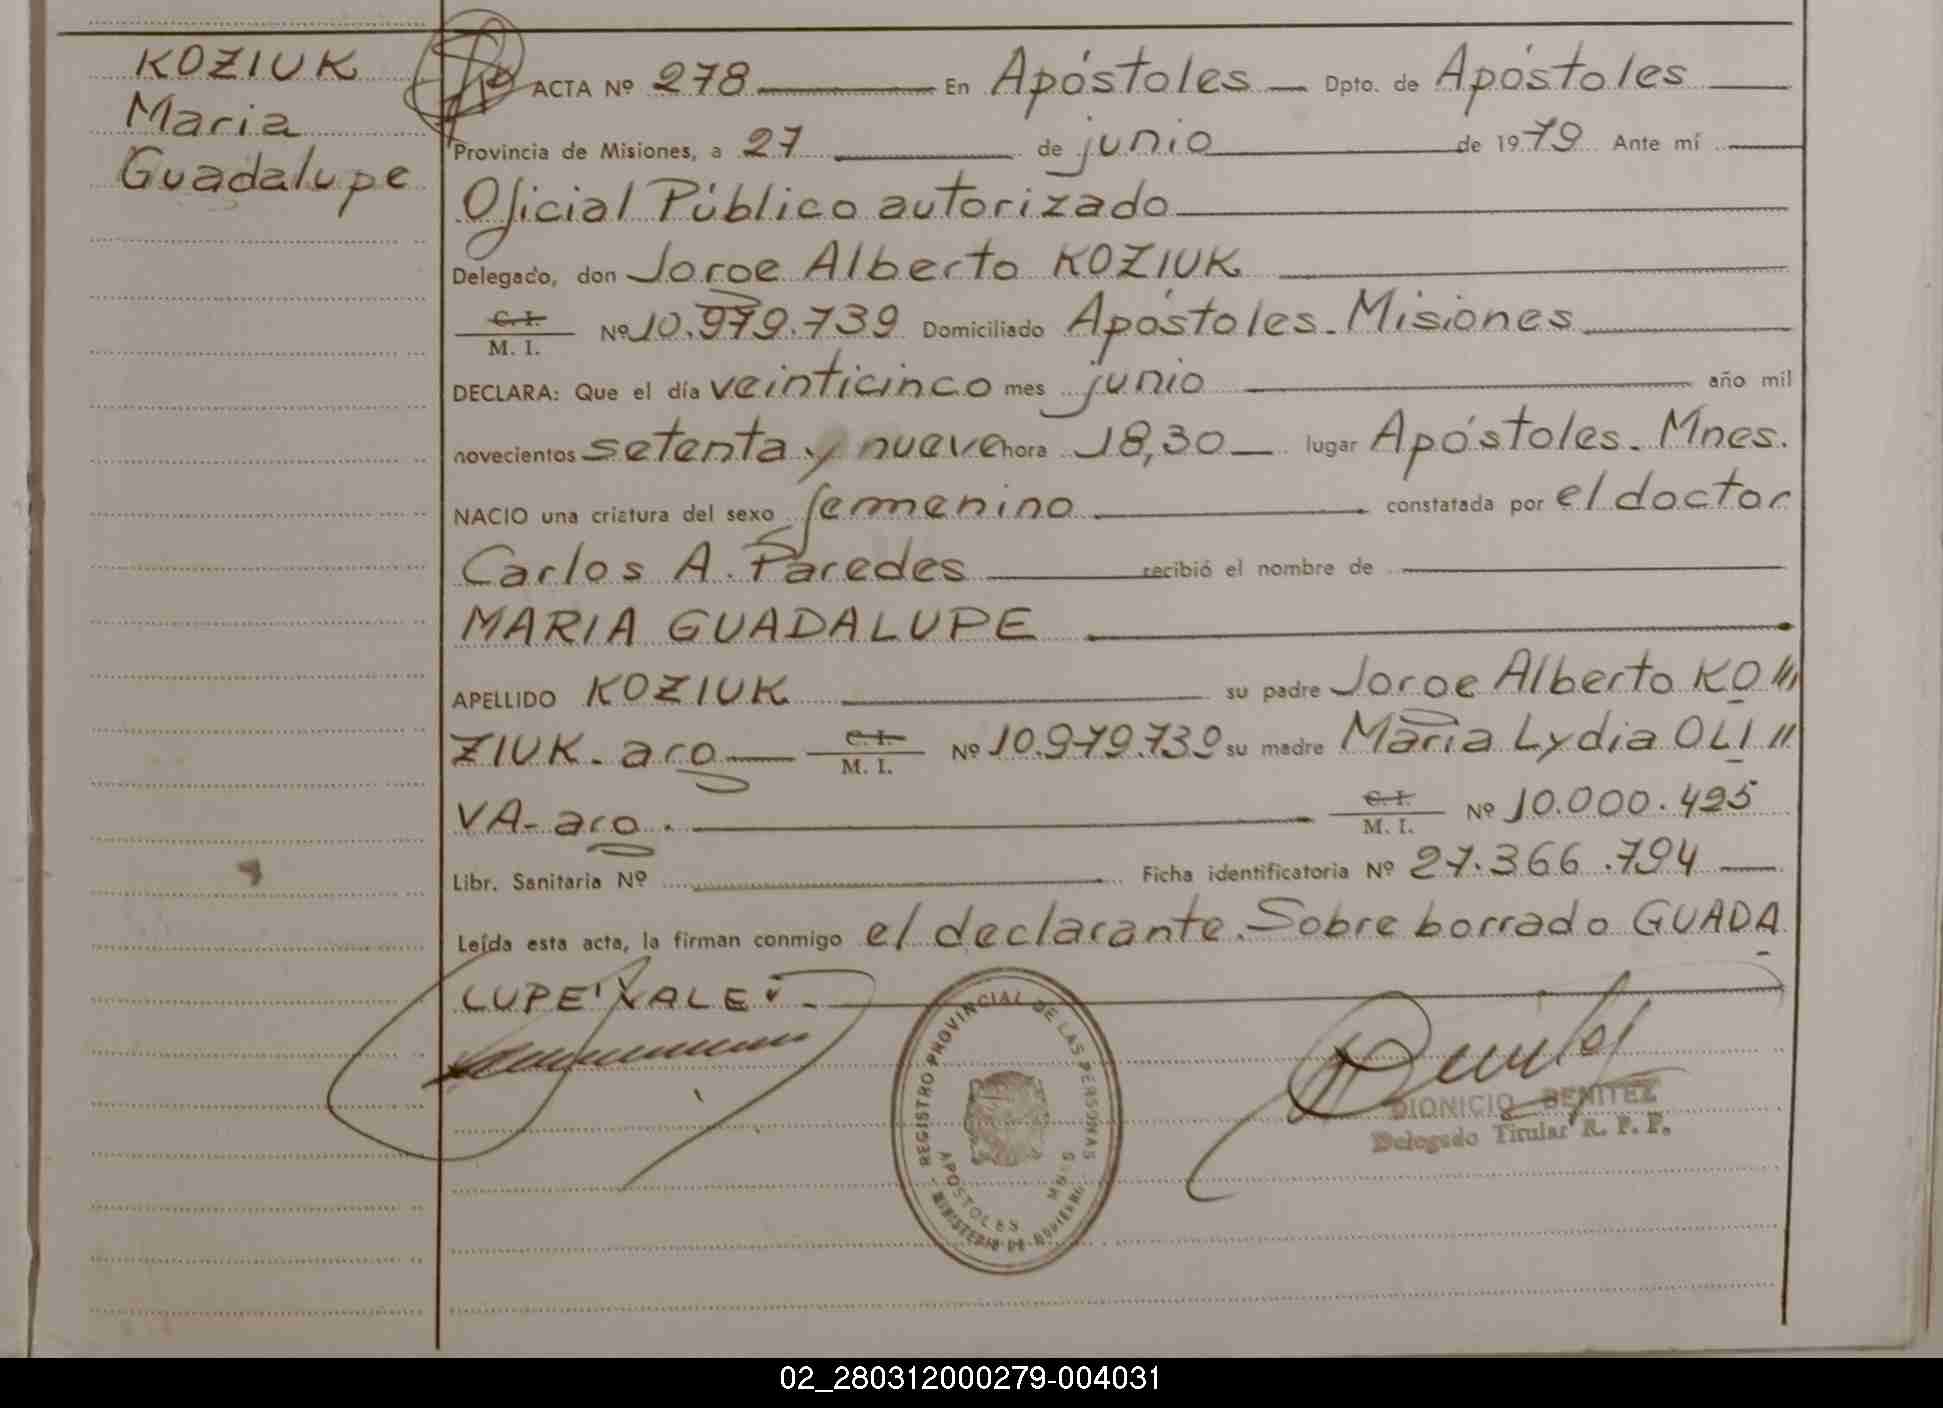 KOZIUK
Maria
Guadalupe
ACTA Nº 278 En Apóstoles Dpto. de Apóstoles
Provincia de Misiones, a 27 de junio de 1979 Ante mí
Oficial Público autorizado
Delegado, don Jorge Alberto KOZIUK
C. I.
M. I. Nº 10.979.739 Domiciliado Apóstoles. Misiones
DECLARA: Que el día veinticinco mes junio año mil
novecientos setenta y nueve hora 18,30 lugar Apóstoles. Mnes.
NACIO una criatura del sexo femenino constatada por el doctor
Carlos A. Paredes recibió el nombre de
MARIA GUADALUPE
APELLIDO KOZIUK su padre Jorge Alberto KO
ZIUK. arg C. I. M. I. Nº 10.979.739 su madre Maria Lydia OLI
VA- arg. C. I. M. I. Nº 10.000.425
Libr. Sanitaria Nº Ficha identificatoria Nº 27.366.794
Leída esta acta, la firman conmigo el declarante. Sobre borrado GUADA
LUPE" VALE".-
REGISTRO PROVINCIAL DE LAS PERSONAS
APOSTOLES MNES
MINISTERIO DE GOBIERNO
DIONICIO BENITEZ
Delegado Titular R. P. P.
02_280312000279-004031